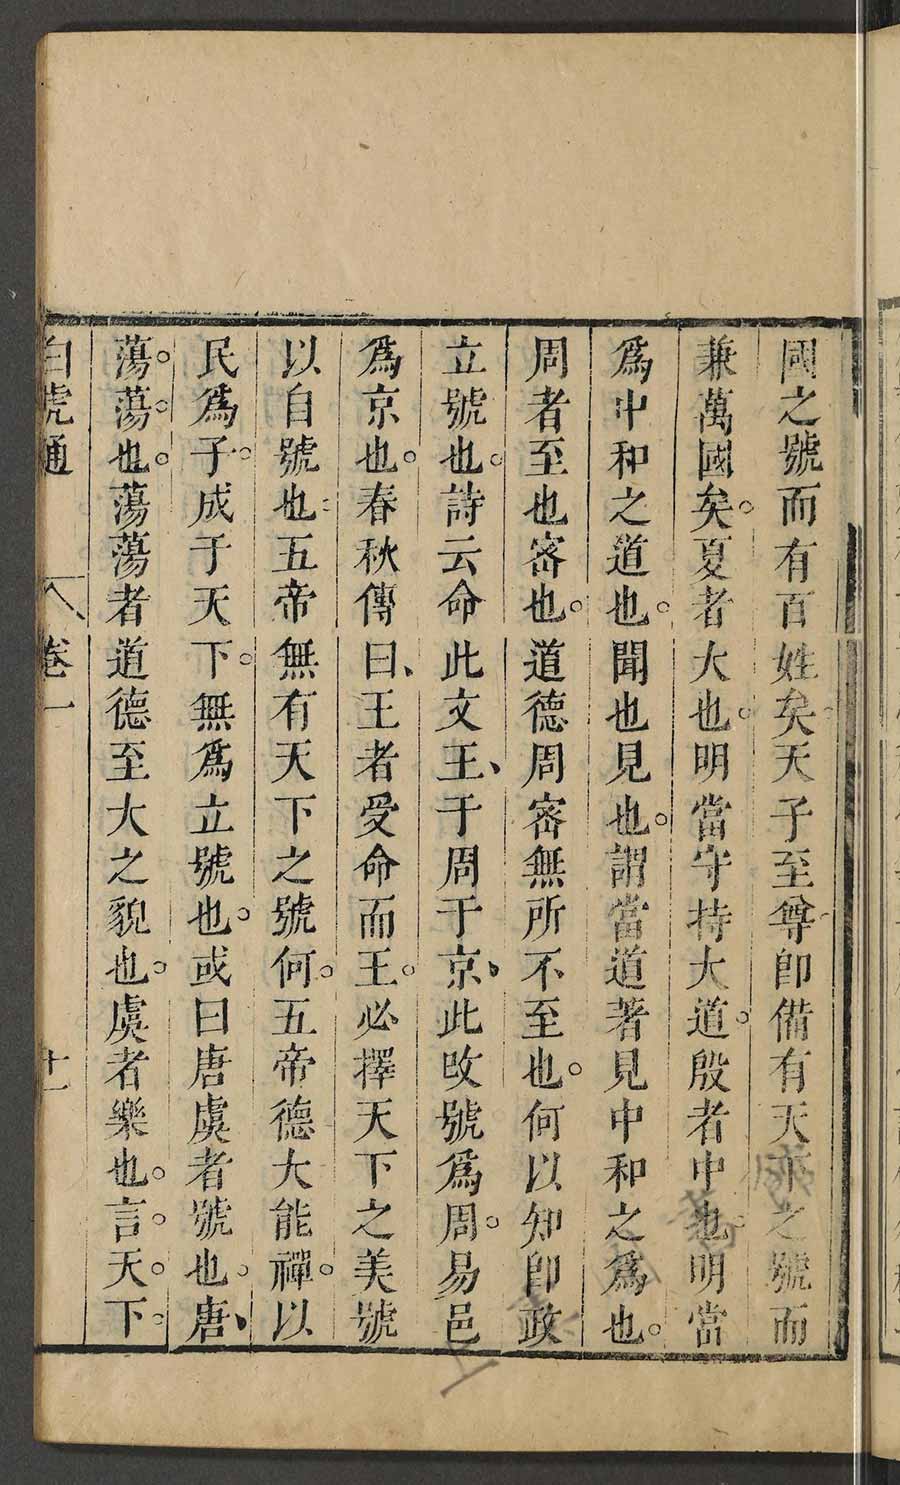 國之號而有百姓矣天子至尊卽備有天下之號而
兼萬國矣。夏者大也。明當守持大道。殷者中也明當
爲中和之道也。聞也見也。謂當道著見中和之爲也。
周者至也密也。道德周密無所不至也。何以知卽政
立號也。詩云命此文王、于周于京、此改號爲周。易邑
爲京也。春秋傳曰、王者受命而王。必擇天下之美號
以自號也五帝無有天下之號何。五帝德大能禪。以
民爲子。成于天下。無爲立號也。或曰唐虞者號也。唐、
蕩。蕩。也。蕩蕩者道德至大之貌也。虞者樂也。言。天。下。
白虎通 卷一 十一